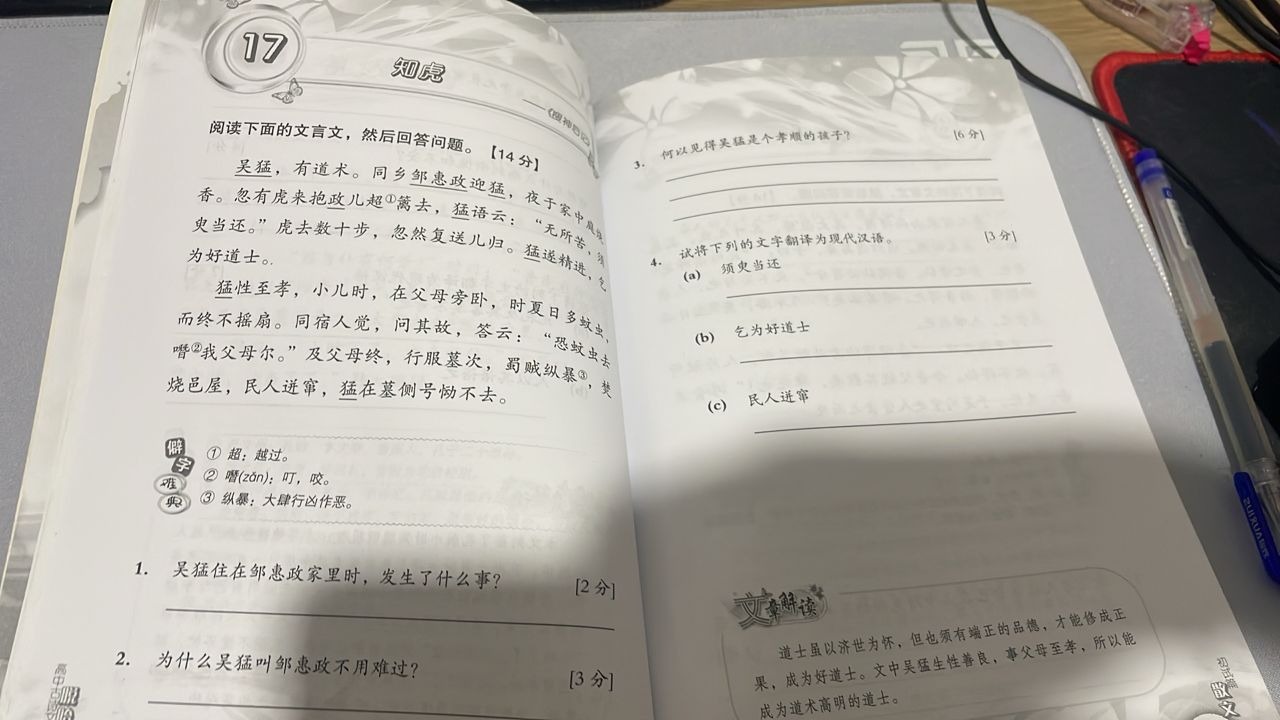 17
知虎
——《搜神后记》
阅读下面的文言文，然后回答问题。【14分】
吴猛，有道术。同乡邹惠政迎猛，夜于家中庭烧
香。忽有虎来抱政儿超①篱去，猛语云：“无所苦，须
臾当还。”虎去数十步，忽然复送儿归。猛遂精进，乞
为好道士。.
猛性至孝，小儿时，在父母旁卧，时夏日多蚊虫，
而终不摇扇。同宿人觉，问其故，答云：“恐蚊虫去
噆②我父母尔。”及父母终，行服墓次，蜀贼纵暴③，焚
烧邑屋，民人迸窜，猛在墓侧号恸不去。
僻字难典
① 超：越过。
② 噆(zǎn)：叮，咬。
③ 纵暴：大肆行凶作恶。
1. 吴猛住在邹惠政家里时，发生了什么事？ [2分]
2. 为什么吴猛叫邹惠政不用难过？ [3分]
高中古
3. 何以见得吴猛是个孝顺的孩子？ [6分]
4. 试将下列的文字翻译为现代汉语。 [3分]
(a) 须臾当还
(b) 乞为好道士
(c) 民人迸窜
文章解读
道士虽以济世为怀，但也须有端正的品德，才能修成正
果，成为好道士。文中吴猛生性善良，事父母至孝，所以能
成为道术高明的道士。
初试篇
散文